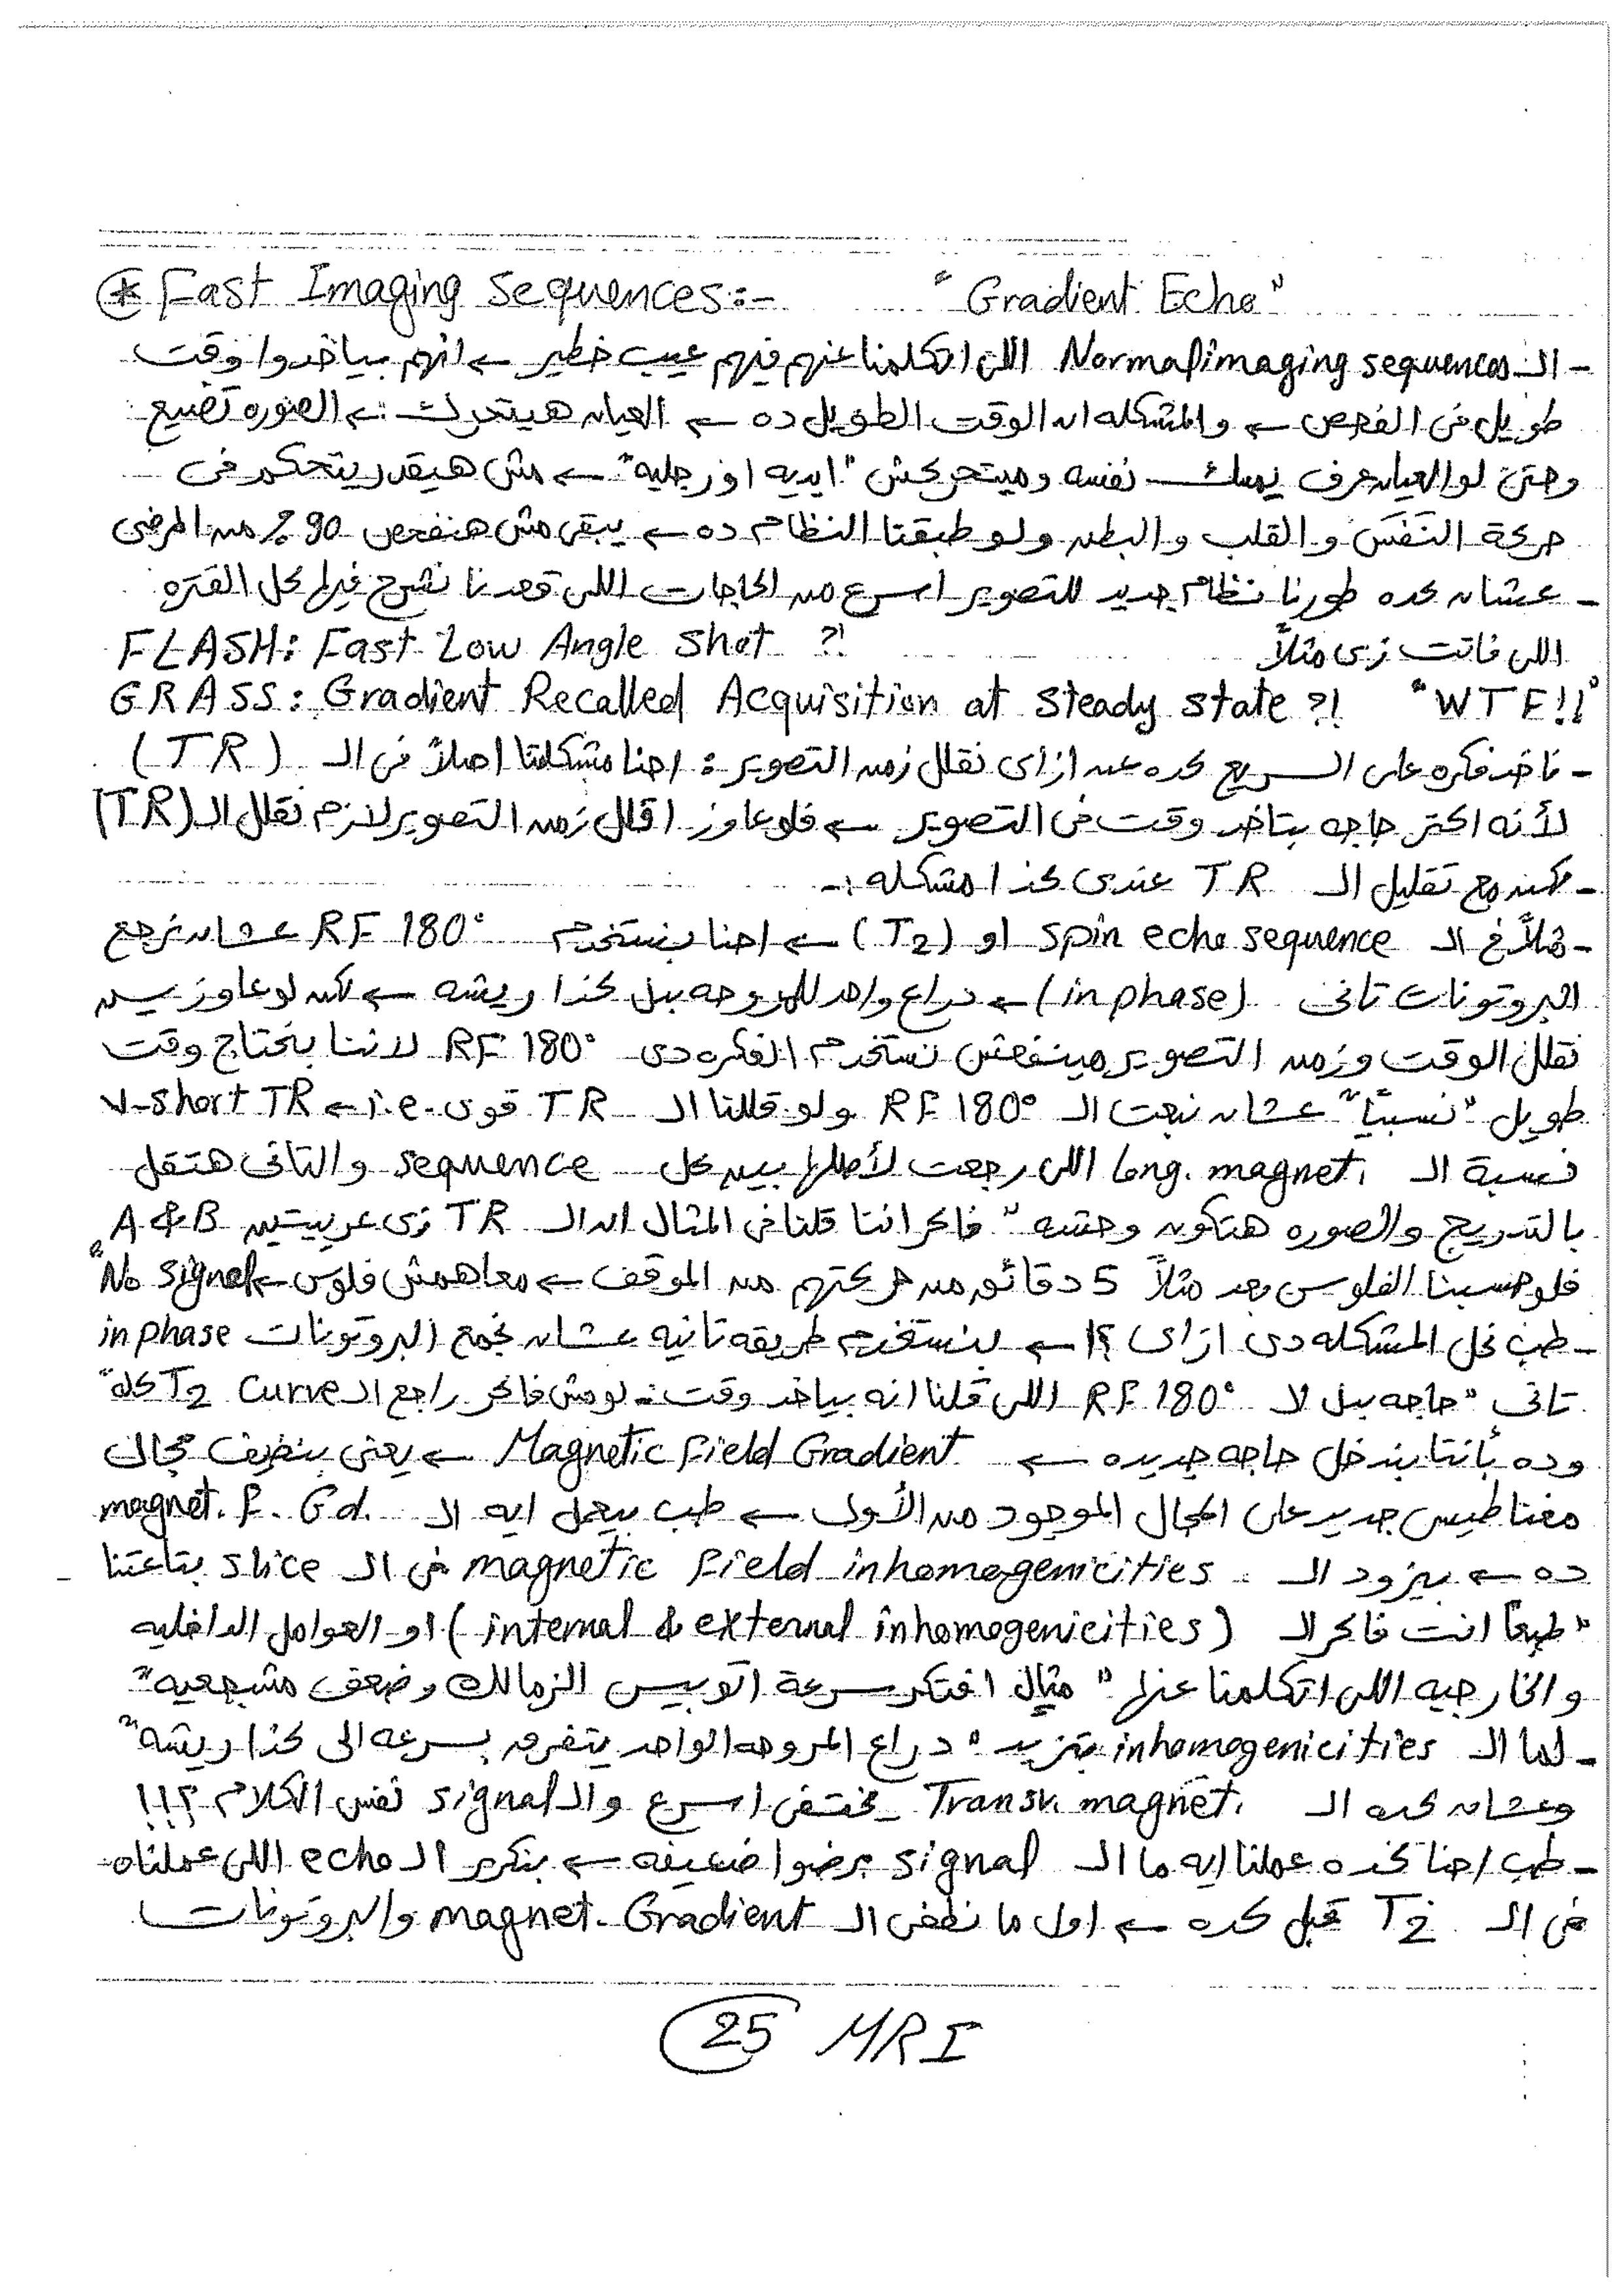 * Fast Imaging Sequences:- "Gradient Echo"
- الـ Normal imaging sequences اللى اتكلمنا عنهم فيهم عيب خطير ← انهم بياخدوا وقت
طويل فى الفحص ← والمشكله ان الوقت الطويل ده ← العيان هيتحرك ∴ ← الصوره تضيع
وحتى لو العيان عرف يمسك نفسه وميتحركش "ايديه او رجليه" ← مش هيقدر يتحكم فى
حركة النَفَس والقلب والبطن ولو طبقنا النظام ده ← يبقى مش هنفحص 90 % من المرضى
- عشان كده طورنا نظام جديد للتصوير اسرع من الحاجات اللى قعدنا نشرح فيها كل الفتره
اللى فاتت زى مثلاً FLASH: Fast Low Angle Shot ?!
GRASS: Gradient Recalled Acquisition at Steady State ?! "WTF!!"
- ناخد فكره على السريع كده عن ازاى نقلل زمن التصوير : احنا مشكلتنا اصلاً فى الـ (TR)
لأنه اكتر حاجه بتاخد وقت فى التصوير ← فلو عاوز اقلل زمن التصوير لازم نقلل الـ (TR)
- لكن مع تقليل الـ TR عندى كذا مشكله :-
- مثلاً فى الـ spin echo sequence او (T2) ← احنا بنستخدم RF 180° عشان نرجع
البروتونات تانى (in phase) ← دراع واحد للمروحه بدل كذا ريشه ← لكن لو عاوزيين
نقلل الوقت وزمن التصوير مينفعش نستخدم الفكره دى RF 180° لاننا بنحتاج وقت
طويل "نسبيًا" عشان نبعت الـ RF 180° ولو قللنا الـ TR قوى i.e ← v-short TR
نسبة الـ long. magnet. اللى رجعت لأصلها بين كل sequence والتانى هتقل
بالتدريج والصوره هتكون وحشه "فاكر اننا قلنا فى المثال ان الـ TR زى عربيتين A & B
فلو حسبنا الفلوس بعد مثلاً 5 دقائق من حركتهم من الموقف ← معاهمش فلوس ← No signal"
- طب نحل المشكله دى ازاى ؟! ← بنستخدم طريقه تانيه عشان نجمع البروتونات in phase
تانى "حاجه بدل لا RF 180° اللى قلنا انه بياخد وقت - لو مش فاكر راجع الـ T2 curve كله"
وده بأننا بندخل حاجه جديده ← Magnetic Field Gradient ← يعنى بنضيف مجال
مغناطيسى جديد على المجال الموجود من الأول ← طب بيعمل ايه الـ magnet. F. Gd.
ده ← بيزود الـ magnetic field inhomogenicities فى الـ slice بتاعتنا
"طبعاً انت فاكر الـ (internal & external inhomogenicities) او العوامل الداخليه
والخارجيه اللى اتكلمنا عنها "مثال افتكر سرعة اتوبيس الزمالك وضعف مشجعيه"
- لما الـ inhomogenicities بتزيد "دراع المروحه الواحد يتفرق بسرعه الى كذا ريشه"
وعشان كده الـ Transv. magnet. تختفى اسرع والـ signal نفس الكلام ؟!!!
- طب احنا كده عملنا ايه ما الـ signal برضوا ضعيفه ← بنكرر الـ echo اللى عملناه
فى الـ T2 قبل كده ← اول ما نطفى الـ magnet. Gradient والبروتونات
25 MRI